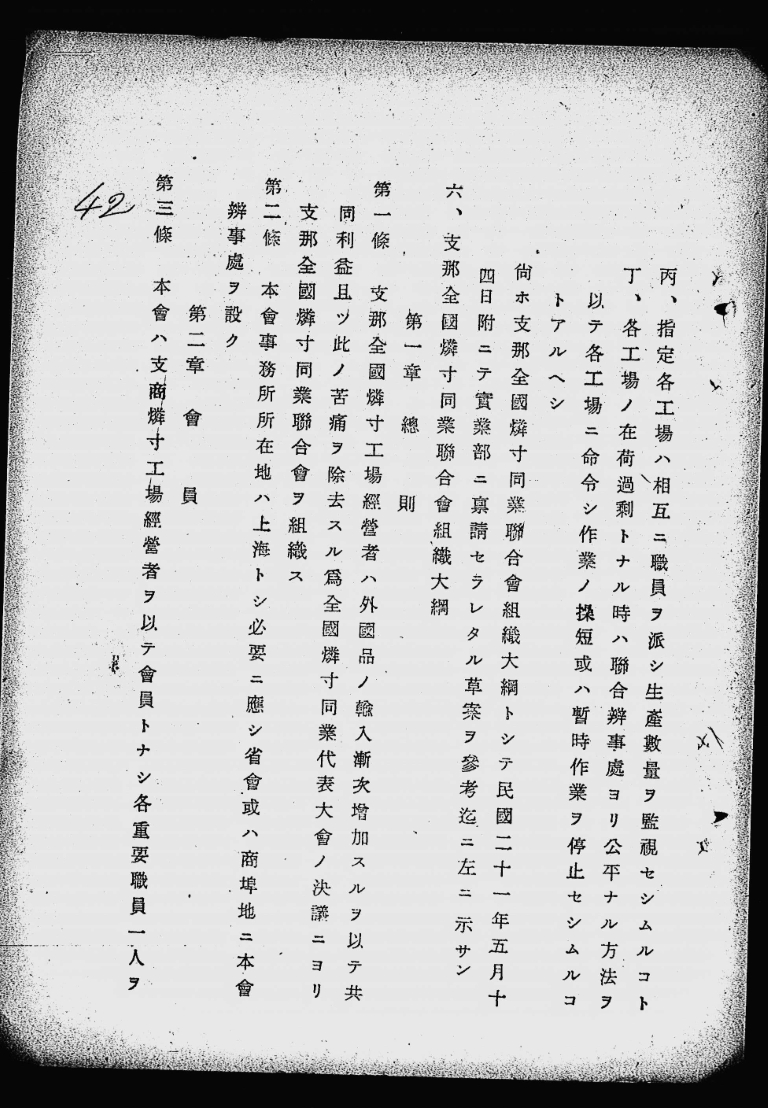 丙、指定各工場ハ相互ニ職員ヲ派シ生產數量ヲ監視セシムルコト
丁、各工場ノ在荷過剩トナル時ハ聯合辨事處ヨリ公平ナル方法ヲ
以テ各工場ニ命令シ作業ノ操短或ハ暫時作業ヲ停止セシムルコ
トアルヘシ
尙ホ支那全國燐寸同業聯合會組織大綱トシテ民國二十一年五月十
四日附ニテ實業部ニ稟請セラレタル草案ヲ參考迄ニ左ニ示サン
六、支那全國燐寸同業聯合會組織大綱
第一章 總則
第一條 支那全國燐寸工場經營者ハ外國品ノ輸入漸次增加スルヲ以テ共
同利益且ツ此ノ苦痛ヲ除去スル爲全國燐寸同業代表大會ノ決議ニヨリ
支那全國燐寸同業聯合會ヲ組織ス
第二條 本會事務所所在地ハ上海トシ必要ニ應シ省會或ハ商埠地ニ本會
辨事處ヲ設ク
第二章 會員
第三條 本會ハ支商燐寸工場經營者ヲ以テ會員トナシ各重要職員一人ヲ
42